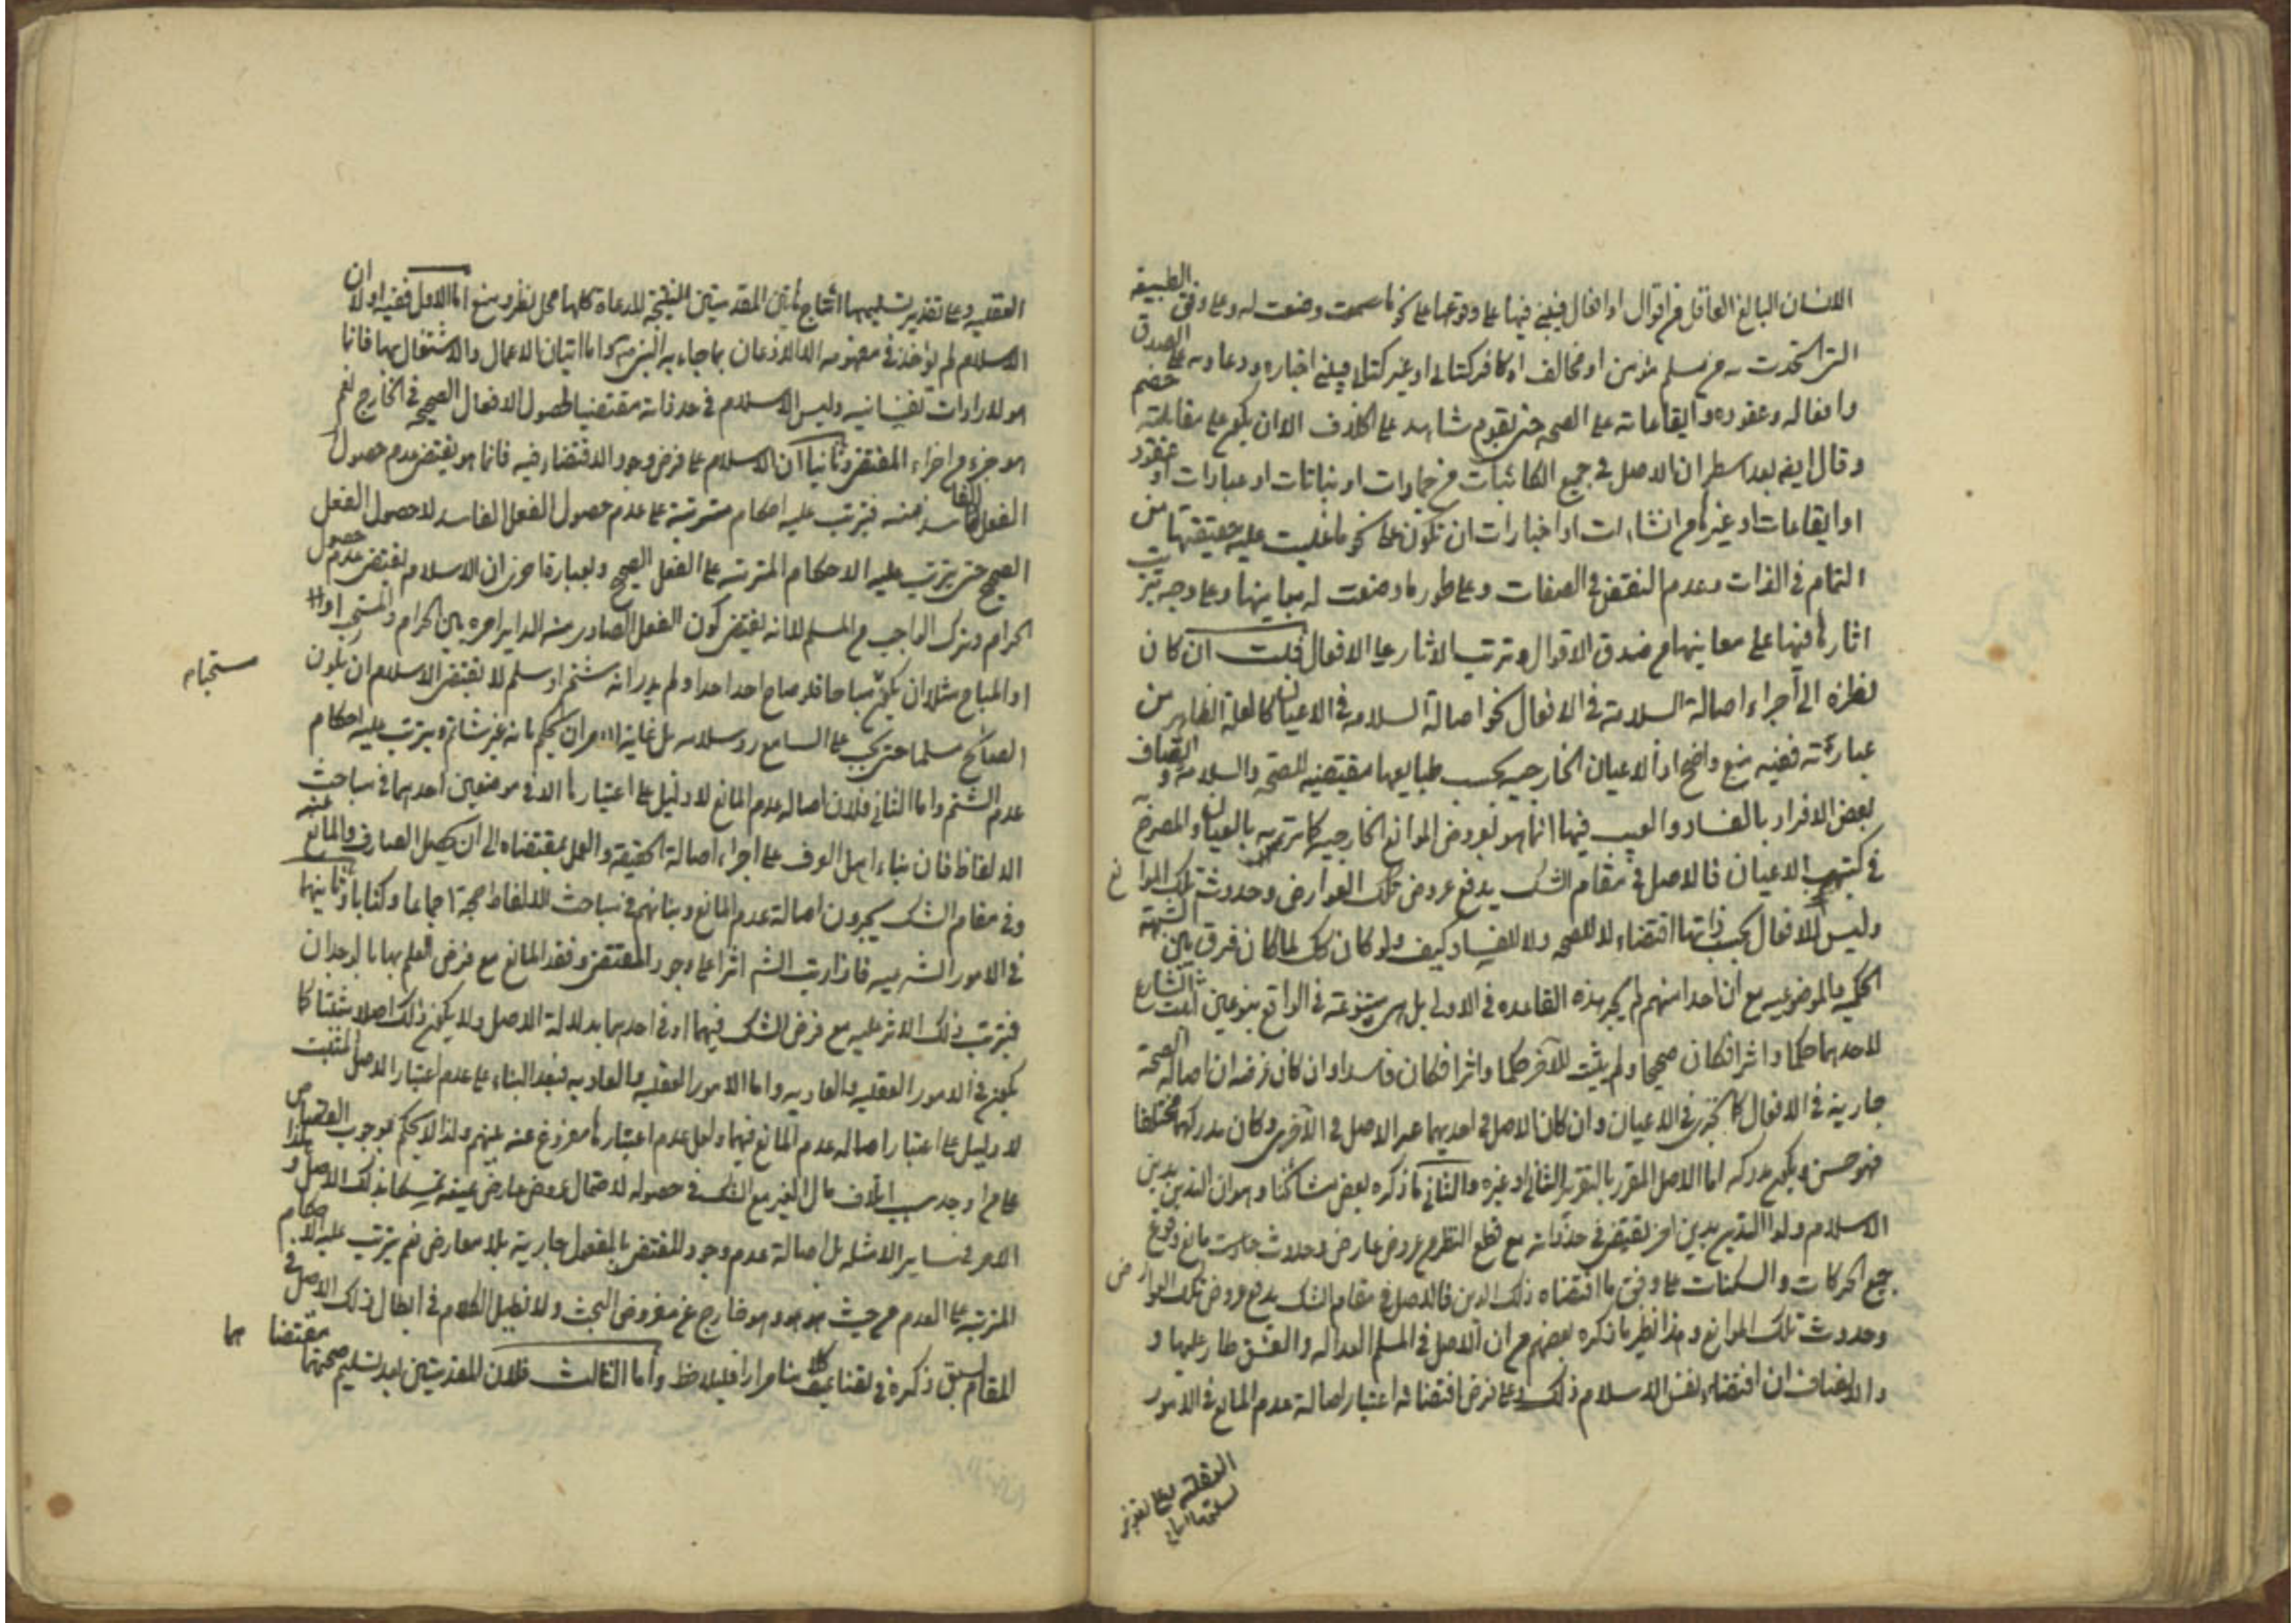 الانسان البالغ العاقل من اقوال او افعال فيبنى فيها على وقوعها على نحو ما وضعت له وعلى وفق الطبيعة
التي اتحدت به من مسلم مؤمن او مخالف او كافر كتابي او غير كتابي فيبنى اخباره ودعاويه على الصدق
وافعاله وعقوده وايقاعاته على الصحة حتى يقوم شاهد على الخلاف الا ان يكون على مقابلته خصم
وقال ايضا بعد اسطر ان الاصل في جميع الكائنات من جمادات او نباتات او عبادات او عقود
او ايقاعات او غيرها من انشاءات او اخبارات ان تكون على نحو ما غلبت عليه حقيقتها من
التمام في الذات وعدم النقص في الصفات وعلى طور ما وضعت له مبانيها وعلى وجه تترتب
اثارها فيها على معانيها من صدق الاقوال وترتب الاثار على الافعال قلت ان كان
نظره الى اجراء اصالة السلامة في الافعال نحو اصالة السلامة في الاعيان كما لعله الظاهر من
عبارته ففيه منع واضح اذ الاعيان الخارجية بحسب طبايعها مقتضية للصحة والسلامة واتصاف
بعض الافراد بالفساد والعيب فيها انما هو لعروض الموانع الخارجية كما ترتيبه بالعيان والمصرح به
في كتبهم الاعيان فالاصل في مقام الشك يدفع عروض تلك العوارض وحدوث تلك الموانع
وليس للافعال بحسب ذاتها اقتضاء لا للصحة ولا للفساد كيف ولو كان كك لما كان فرق بين الشبهة
الحكمية والموضوعية مع ان احدا منهم لم يجر هذه القاعدة في الاولى بل هي متنوعة في الواقع بنوعين اثبت الشارع
لاحدهما حكما واثرا فكان صحيحا ولم يثبت للآخر حكما واثرا فكان فاسدا وان كان غرضه ان اصالة الصحة
جارية في الافعال كما تجري في الاعيان وان كان الاصل في احديهما غير الاصل في الآخر وكان مدركهما مختلفا
فهو حسن ويكون مدركه اما الاصل المقرر بالتقرير الثاني او غيره والثاني ما ذكره بعض مشائخنا وهو ان التدين بدين
الاسلام ولو التدين بدين آخر يقتضي في حد ذاته مع قطع النظر عن عروض عارض وحدوث حادث مانع وقوع
جميع الحركات والسكنات على وفق ما اقتضاه ذلك الدين فالاصل في مقام الشك يدفع عروض تلك العوارض
وحدوث تلك الموانع وهذا نظير ما ذكره بعضهم من ان الاصل في المسلم العدالة والفسق طار عليها و
والانصاف ان اقتضاء نفس الاسلام ذلك وعلى فرض اقتضائه اعتبار اصالة عدم المانع في الامور
العقلية وعلى تقدير
تسليمها انتاج
العقلية وعلى تقدير تسليمها انتاج هاتين المقدمتين النتيجة المدعاة كلها محل نظر ومنع اما الاول ففيه اولا ان
الاسلام لم يؤخذ في مفهومه الا الاذعان بما جاء به النبي واما اتيان الاعمال والاشتغال بها فانما
هو لارادات نفسانية وليس الاسلام في حد ذاته مقتضيا لحصول الافعال الصحيحة في الخارج نعم
هو جزء من اجزاء المقتضي وثانيا ان الاسلام على فرض وجود الاقتضاء فيه فانما هو يقتضي عدم حصول
الفعل الفاسد منه فيترتب عليه احكام مترتبة على عدم حصول الفعل الفاسد لا حصول الفعل
الصحيح حتى يترتب عليه الاحكام المترتبة على الفعل الصحيح وبعبارة اخرى ان الاسلام يقتضي عدم حصول
الحرام وترك الواجب من المسلم لا انه يقتضي كون الفعل الصادر منه الداير امره بين الحرام والمستحب او
او المباح مثلا ان يكون مباحا فلو صاح احد احدا ولم يدر انه شتم او سلم لا يقتضي الاسلام ان يكون
مستحباه
الصائح مسلما حتى يجب على السامع رد سلامه بل غاية الامر ان يحكم بانه غير شاتم ويترتب عليه احكام
عدم الشتم واما الثاني فلان اصالة عدم المانع لا دليل على اعتبارها الا في موضعين احدهما في مباحث
الالفاظ فان بناء اهل العرف على اجراء اصالة الحقيقة والعمل بمقتضاه الى ان يحصل الصارف والمانع عنه
وفي مقام الشك يجرون اصالة عدم المانع وبنائهم في مباحث الالفاظ حجة اجماعا وكتابا وثانيهما
في الامور الشرعية فاذا رتب الشه اثرا على وجود المقتضي وفقد المانع مع فرض العلم بهما بالوجدان
فيترتب ذلك الاثر عليه مع فرض الشك فيهما او في احدهما بدلالة الاصل ولا يكون ذلك اصلا مثبتا كما
يكون في الامور العقلية والعادية واما الامور العقلية والعادية فبعد البناء على عدم اعتبار الاصل المثبت
لا دليل على اعتبار اصالة عدم المانع فيها ولعل عدم اعتبارها مفروغ عنه بينهم ولذا لا يحكم بوجوب القصاص
على من اوجد سبب اتلاف مال الغير مع الشك في حصوله لاحتمال عروض عارض عنه تمسكا بذلك الاصل وهكذا
الامر في ساير الامثلة بل اصالة عدم وجود المقتضي بالمفعول جارية بلا معارض نعم يترتب عليه الاحكام
المترتبة على العدم من حيث هو هو وهو خارج عن مفروض البحث ولا نطيل الكلام في ابطال ذلك الاصل في
المقام لسبق ذكره في لقنا عليك هنا مرارا فليلاحظ واما الثالث فلان المقدمتين بعد تسليم صحتهما مقتضاهما